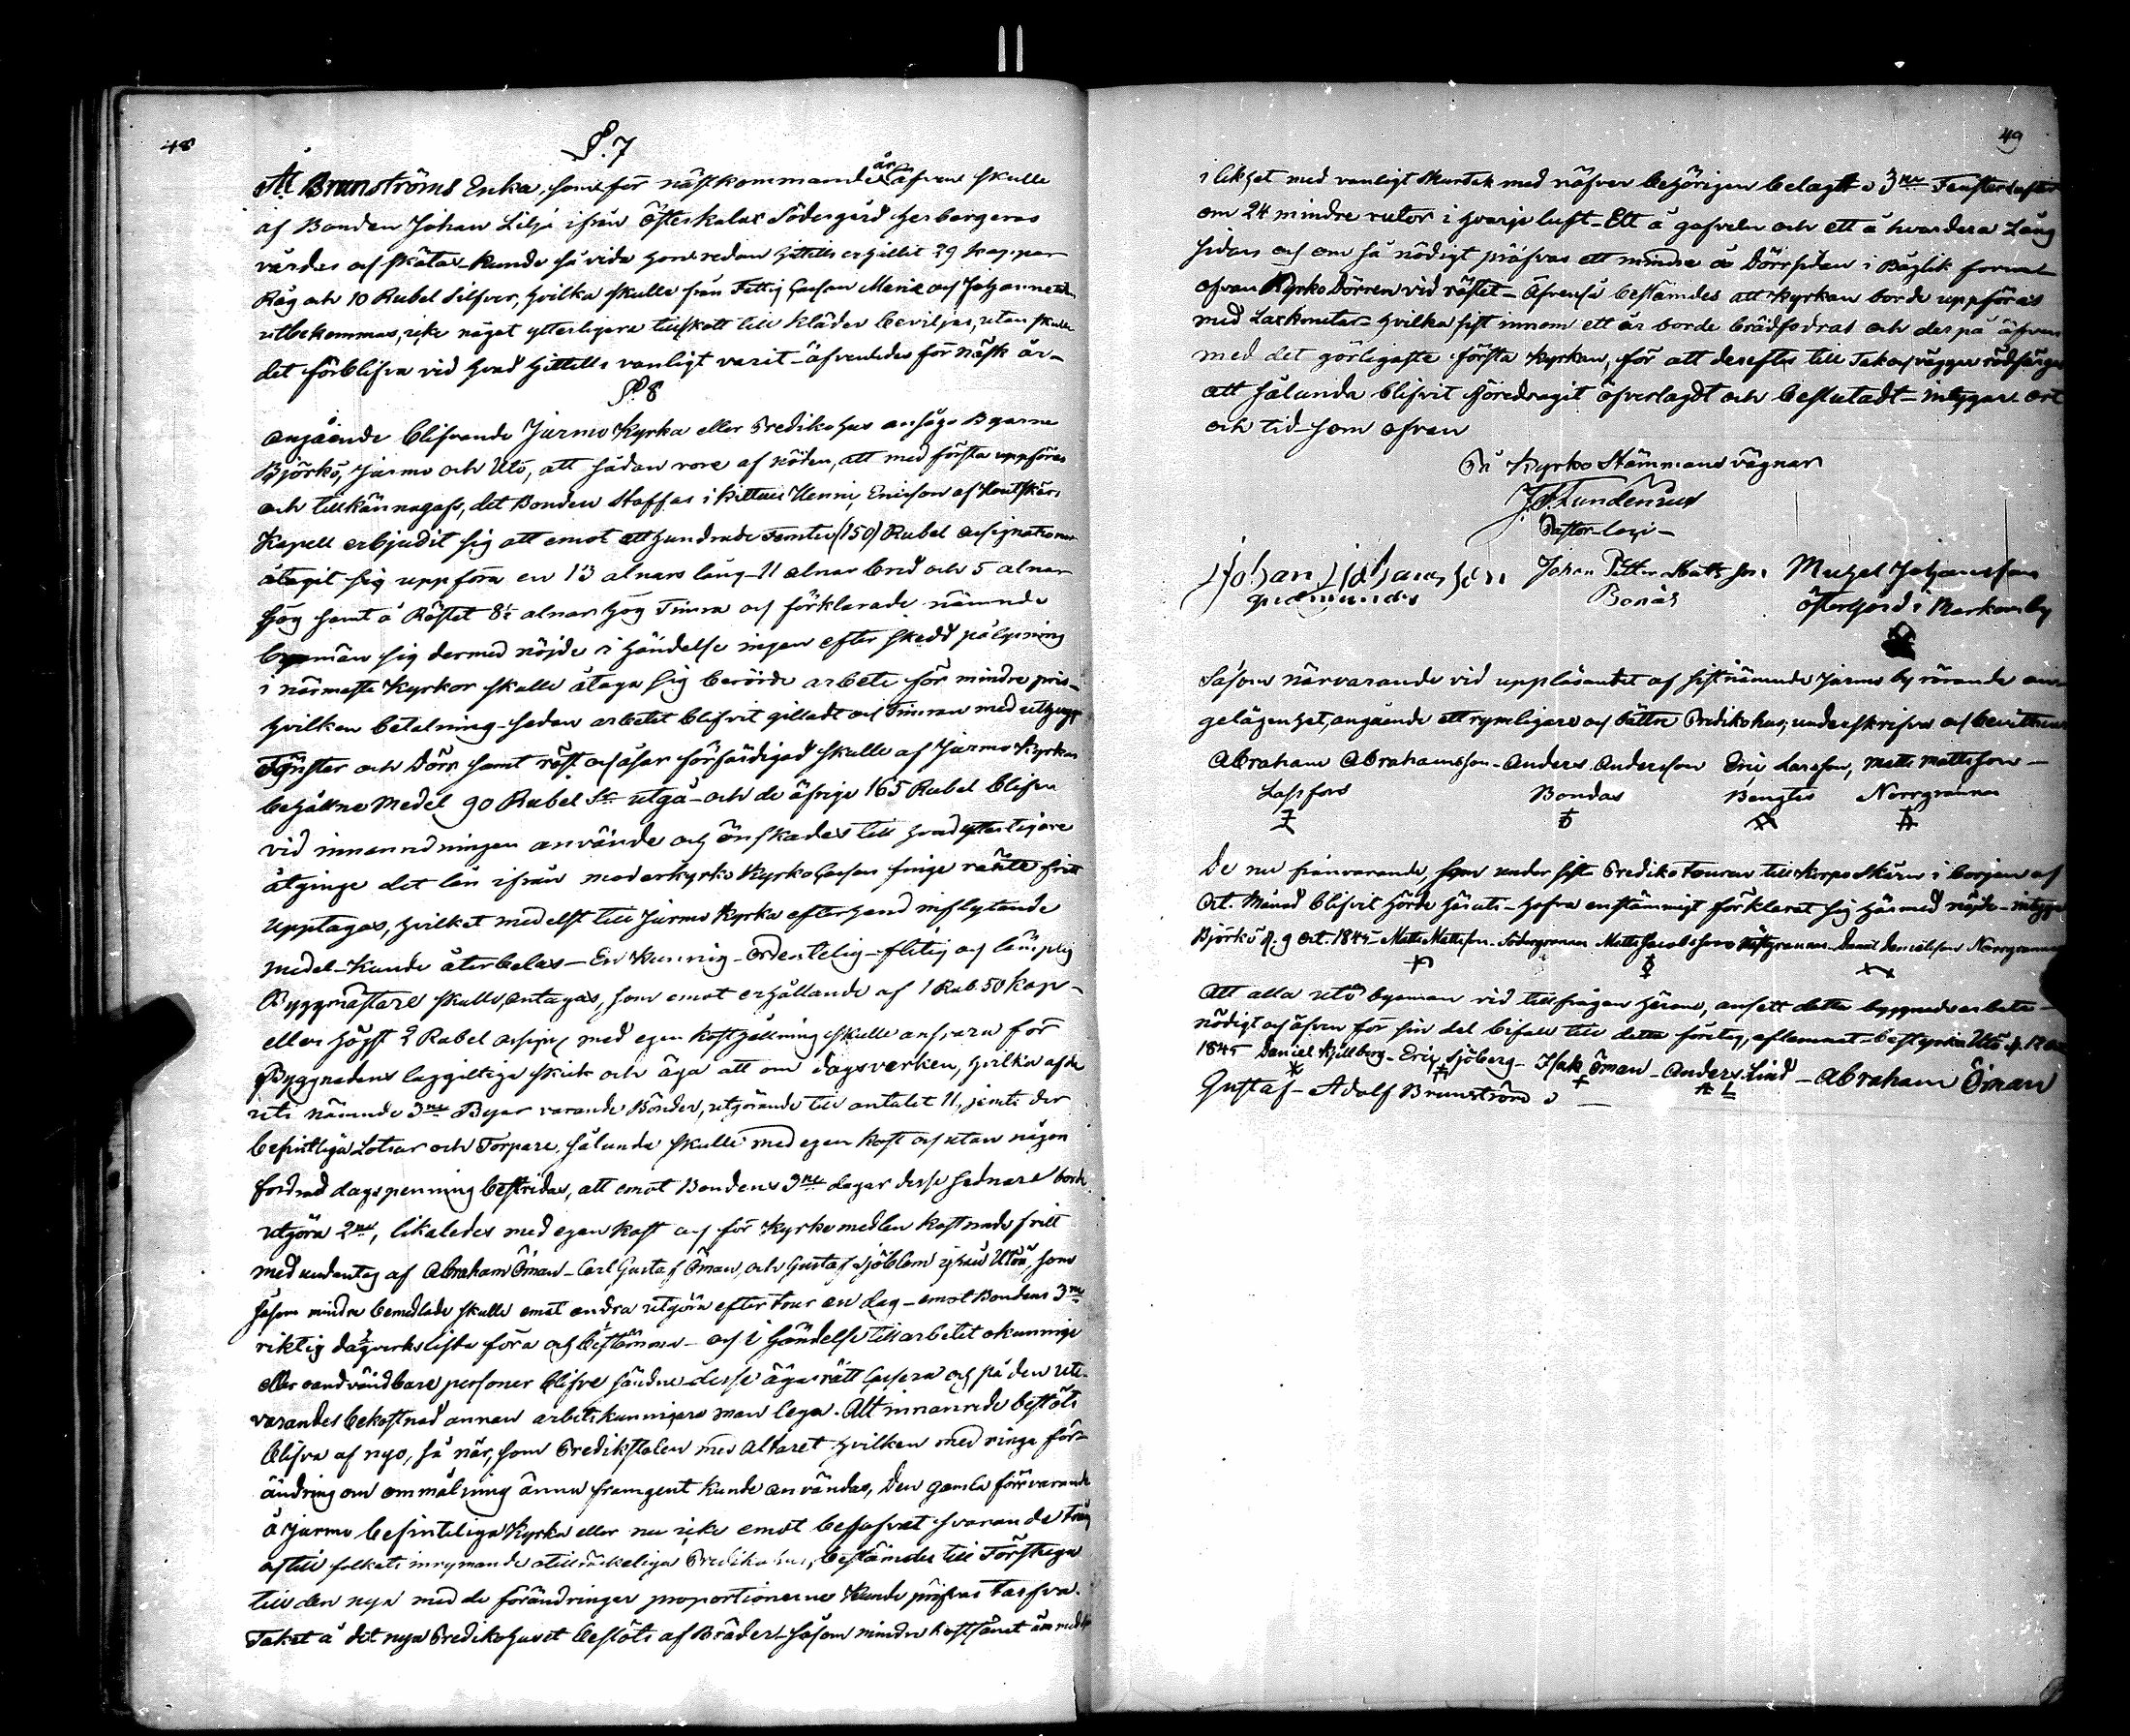 48
§. 7
Att Brunströms Enka, som för nästkommande år äfven skulle
af Bonden Johan Lilja ifrån Österkalax Södergård herbergeras
vårdas och skötas kunde så vida hon redan hittills erhållit 29 kappar
Råg och 10 Rubel Silfver, hvilka skulle från Fattig Cassan
utbekommas, icke något ytterligare tillskott till kläder beviljas, utan skulle
det förblifva vid hvad hittills vanligt varit äfvenledes för näst år
§. 8
Angående blifvande Jurmo Kyrka eller Predikohus ansågo Byarne
Björkö, Jurmo och Utö, att sådan vore af nöden, att med första uppföras
och tillkännagafs, det Bonden Staffas i Henric Ericson af Houtskärs
Kapell erbjudit sig att emot ett hundrade femtio (150) Rubel assignationer
åtagit sig uppföra en 13 alnars lång 11 alnar bred och 5 alnar
hög samt å Röstet 8½ alnar hög Timra och förklarade nämnde
byamän sig dermed nöjde i händelse ingen efter skedd pålysning
i närmaste Kyrkor skulle åtaga sig berörde arbete för mindre pris
hvilken betalning sedan arbetet blifvit gilladt och Timran med uthuggne
Fönster och Dörr samt röst och åsar färdigad skulle af Jurmo Kyrkas
behållne Medel 90 Rubel utgå och de öfrige 165 Rubel blifva
vid innanredningen använde och önskades till hvad ytterligare
åtginge det lån ifrån moderkyrko Kyrko Cassan finge ränte fritt
upptagas, hvilket medelst till Jurmo Kyrka efterhand inflytande
medel kunde återbetalas En kunnig ordentelig flitig och lämplig
Byggmästare skulle antagas, som emot erhållande af 1 Rub. 50 kop
eller högst 2 Rubel med egen kosthållning skulle ansvara för
Byggnadens laggiltiga skick och äga att om dagsverken, hvilka af de
uti nämnde 3ne Byar varande Bönder, utgörande till antalet 11, jemte der
befintliga Lotsar och Torpare, sålunda skulle med egen kost och utan någon
fordrad dagspenning bestridas, att emot Bondens 3ne dagar desse sednare borde
utgöra 2ne, likaledes med egen kost och för Kyrkomedlen kostnads fritt
med undantag af Abraham Öman Carl Gustaf Öman, och Gustaf Sjöblom ifrån Utö, som
såsom mindre bemedlade skulle emot andra utgöra efter tour en dag emot Bondens 3ne
riktig dagsverkslista föra och bestämma och i händelse till arbetet okunnige
eller oandvändbare personer blifve sände desse äga rätt Cassera och på den ute-
varandes bekostnad annan arbetskunnigare man lega. Allt innanrede bestöts
blifva af nyo, så när, som Predikstolen med Altaret hvilken med ringa för-
ändring om ommålning ännu framgent kunde användas, Den gamla förvarande
å Jurmo befinteliga Kyrka eller nu icke emot behofvet svarande trång
och till folkets inrymmande otillräckeliga Predikohus, bestämdes till Förstuga
till den nya med de förändringar proportionerne kunde pröfvas tarfva.
Taket å det nya Predikohuset beslöts af Bräder såsom mindre kostsamt än med
49
i likhet med vanligt med näfver behörigen belagdt 3ne Fensterlufter
om 24 mindre rutor i hvarje luft Ett å gafveln och ett å hvardera Lång
sidan och om så nödigt pröfvas ett mindre å Dörrsidan i Båglik format
ofvan Kyrko Dörren vid röstet Äfvenså bestämdes att kyrkan borde uppföras
med Laxknutar hvilka sist innom ett år borde brädfodras och derpå äfven
med det görligaste första Kyrkan, för att derefter till Tak och väggar rödfärgas
att sålunda blifvit föredragit öfverlagdt och beslutadt intygar ort
och tid som ofvan
På Kyrko Stämmans vägnar
J. F. Lundenius
Pastor loci
Johan Johansson Johan Petter Mattsson Michel Johansson
Gudmunds Bonäs Östergård i Markomby
Såsom närvarande vid uppläsandet af sistnämnde Jurmo by rörande an-
gelägenhet, angående ett rymligare och bättre Predikohus, underskrifva och bevittna
Abraham Abrahamsson Anders Andersson Eric Larsson, Matts Mattsson
Bondas Bengtes Norrgranna
De nu frånvarande, som under sista Prediko touren till Korpo Skären i början af
Oct. Månad blifvit hörde häruti hafva enstämmigt förklarat sig härmed nöjde intyga
Björkö d. 9 Oct. 1845 Matts Mattsson Södergranna Matts Jacobsson Daniel Danielsson Norrgranna
Att alla Utö byaman vid tillfrågan härom, ansett detta byggnadsarbete
nödigt och äfven för sin del bifall till detta företag, aflemnat bestyrka Utö d. 12 Oct
1845 Daniel Kjellberg Eric Sjöberg Isak Öman Anders Lind Abraham Öman
Gustaf Adolf Brunström